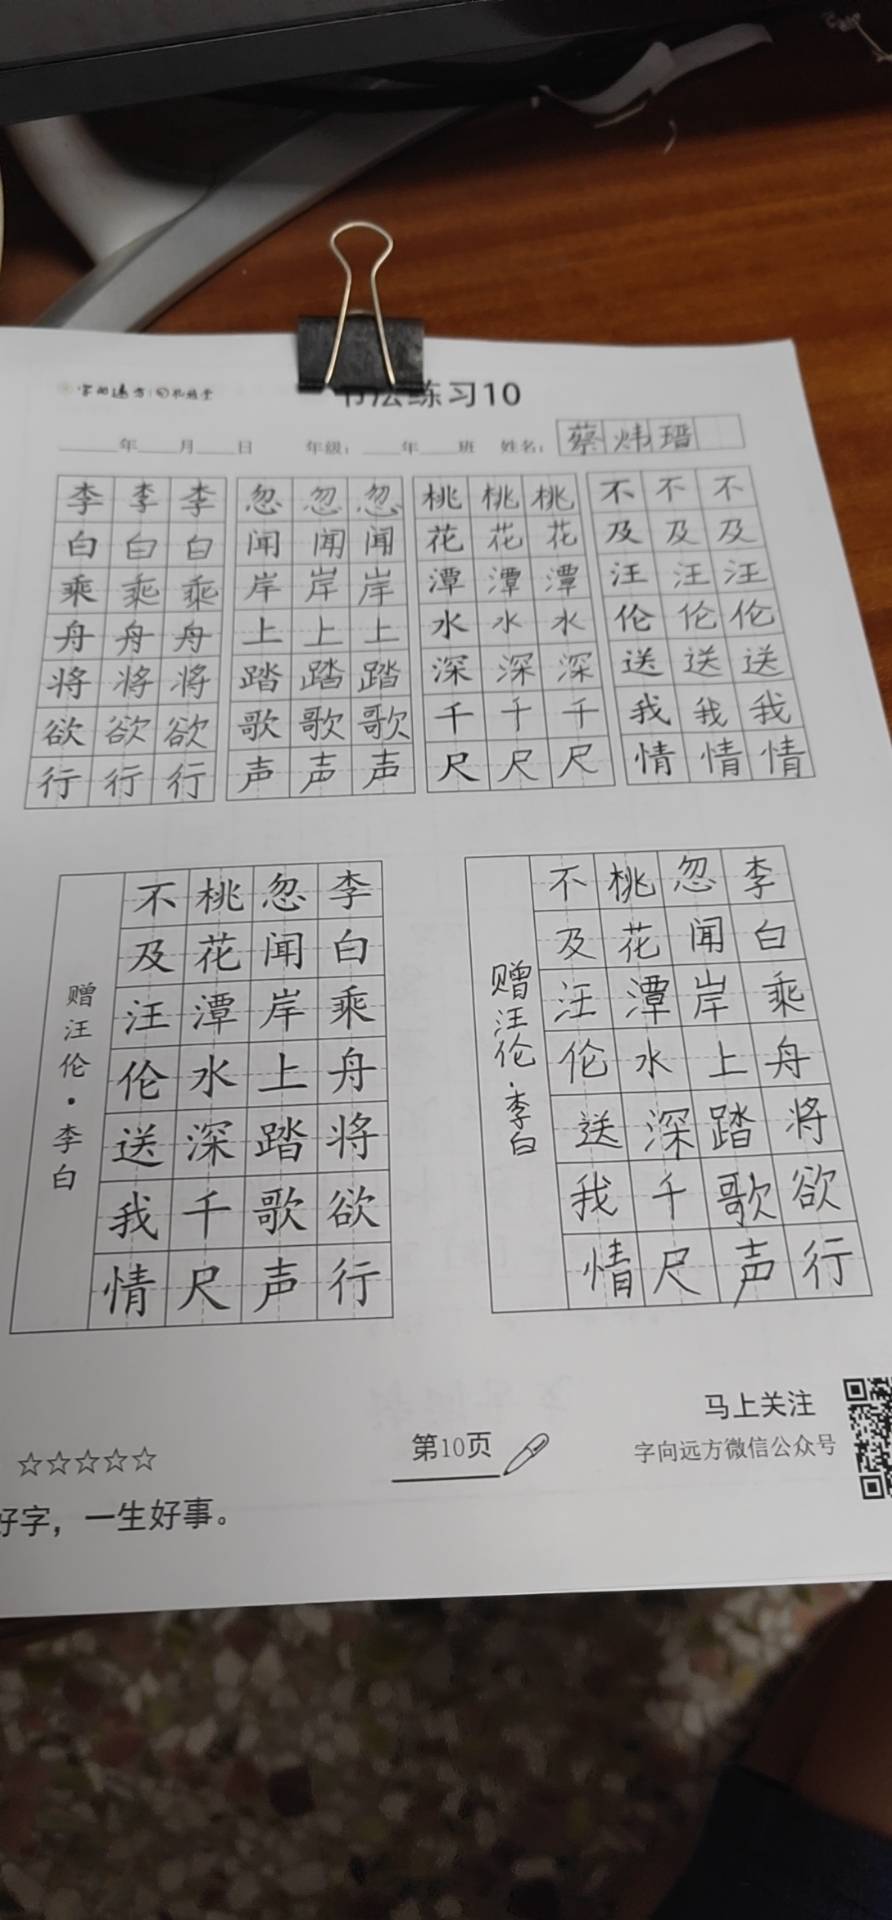 书法练习10
年 月 日 年级： 年 班 姓名： 蔡炜瑨
李 李 李 忽 忽 忽 桃 桃 桃 不 不 不
白 白 白 闻 闻 闻 花 花 花 及 及 及
乘 乘 乘 岸 岸 岸 潭 潭 潭 汪 汪 汪
舟 舟 舟 上 上 上 水 水 水 伦 伦 伦
将 将 将 踏 踏 踏 深 深 深 送 送 送
欲 欲 欲 歌 歌 歌 千 千 千 我 我 我
行 行 行 声 声 声 尺 尺 尺 情 情 情
李白乘舟将欲行
忽闻岸上踏歌声
桃花潭水深千尺
不及汪伦送我情
赠汪伦·李白
李白乘舟将欲行
忽闻岸上踏歌声
桃花潭水深千尺
不及汪伦送我情
赠汪伦·李白
☆☆☆☆☆
第10页
马上关注
字向远方微信公众号
好字，一生好事。